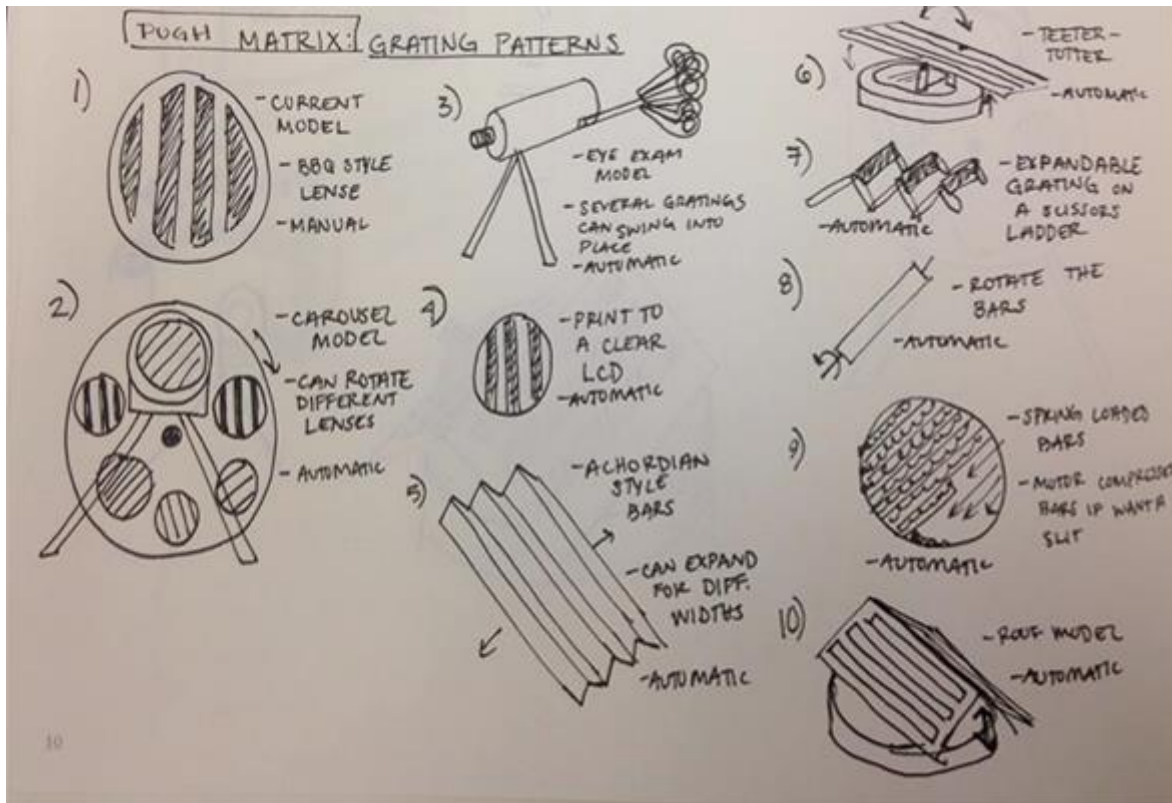 PUGH MATRIX: GRATING PATTERNS
1)
- CURRENT
MODEL
- BBQ STYLE
LENSE
- MANUAL
2)
- CAROUSEL
MODEL
- CAN ROTATE
DIFFERENT
LENSES
- AUTOMATIC
3)
- EYE EXAM
MODEL
- SEVERAL GRATINGS
CAN SWING INTO
PLACE
- AUTOMATIC
4)
- PRINT TO
A CLEAR
LCD
- AUTOMATIC
5)
- ACHORDIAN
STYLE
BARS
- CAN EXPAND
FOR DIFF.
WIDTHS
- AUTOMATIC
6)
- TEETER-
TOTTER
- AUTOMATIC
7)
- EXPANDABLE
GRATING ON
A SCISSORS
LADDER
- AUTOMATIC
8)
- ROTATE THE
BARS
- AUTOMATIC
9)
- SPRING LOADED
BARS
- MOTOR COMPRESSES
BARS IF WANT A
SLIT
- AUTOMATIC
10)
- ROOF MODEL
- AUTOMATIC
10